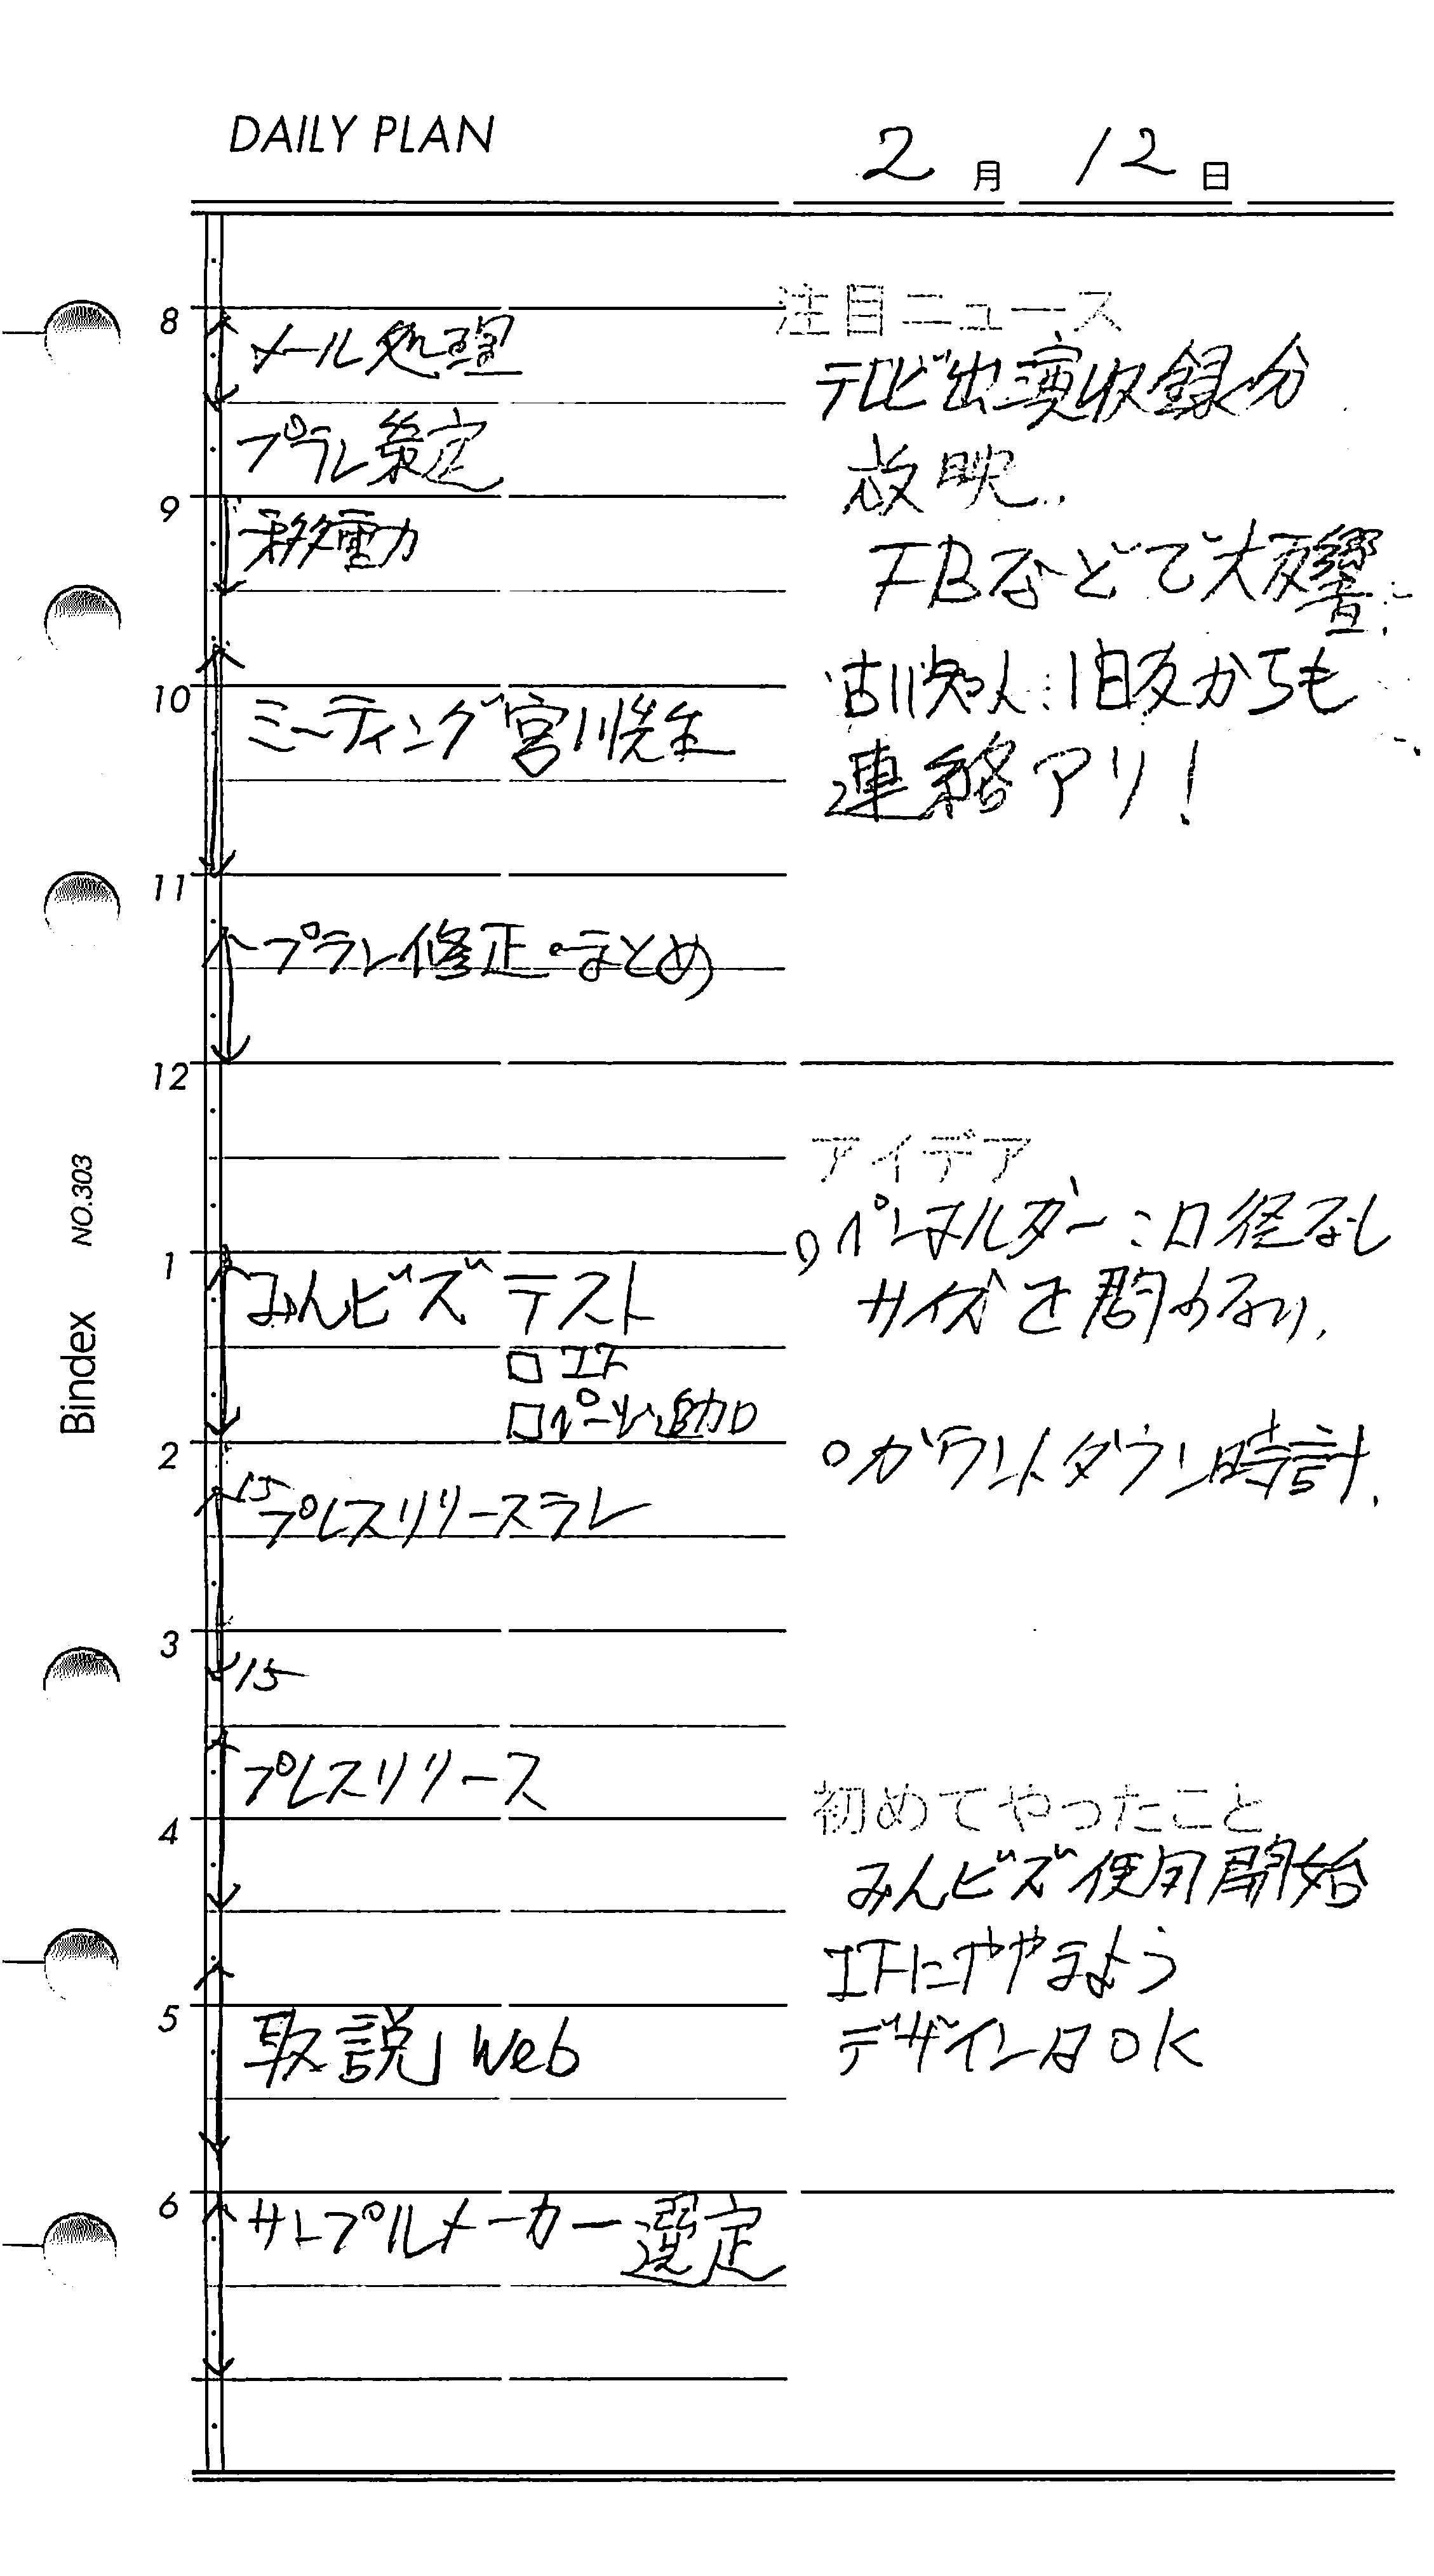 DAILY PLAN
2月12日
8
メール処理
プラン策定
9
移動
10
ミーティング 宮川先生
11
プラン修正・まとめ
12
1
みんビズ テスト
□ エディ
□ パーツ追加
2
15
プレスリリースラン
3
15
プレスリリース
4
5
取説 Web
6
サンプルメーカー選定
注目ニュース
テレビ出演収録分
放映..
FBなどで大反響.
古い知人:旧友からも
連絡アリ!
アイデア
ペンホルダー:口径なし
サイズを問わない.
○カウントダウン時計.
初めてやったこと
みんビズ使用開始
ややまよう
デザインはOK
Bindex NO.303